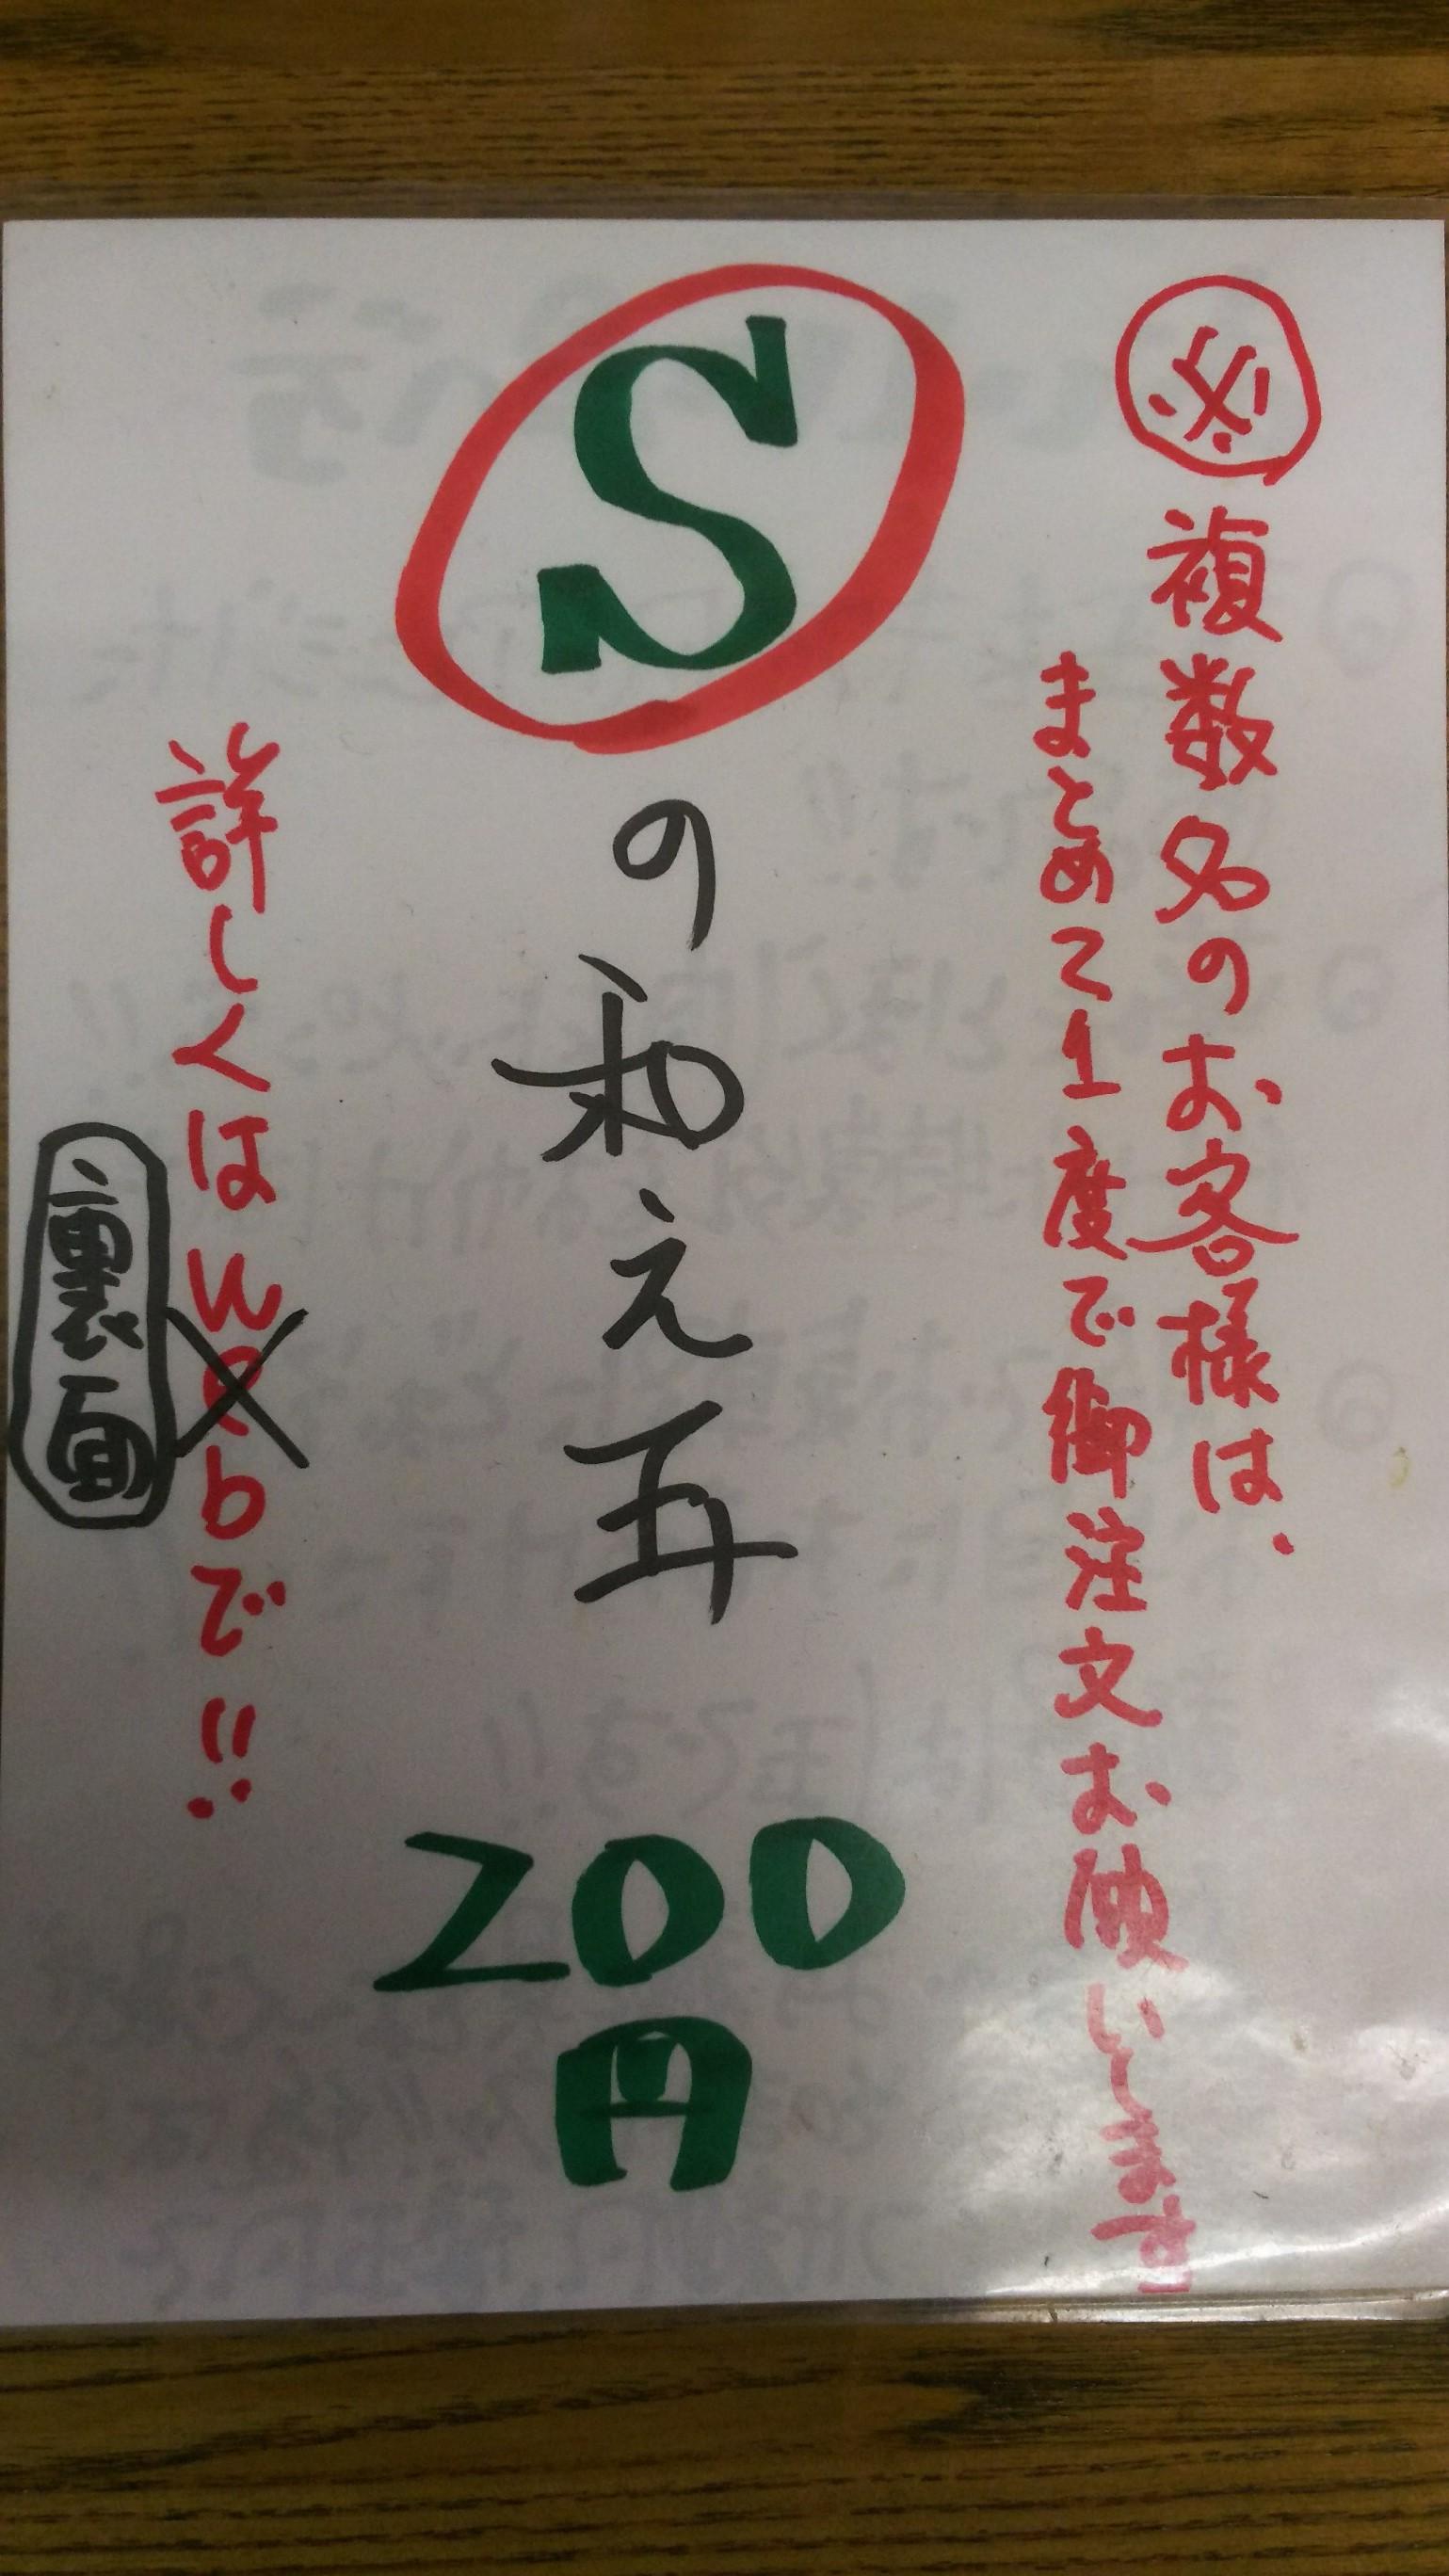 必 複数名のお客様は、
まとめて1度で御注文お願いします
Sの和え玉 200円
詳しくはWebで!!
裏面